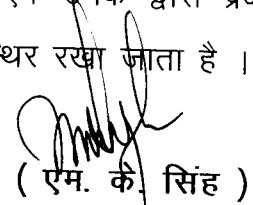 द्वारा
थर रखा जाता है ।
( एम. के. सिंह )